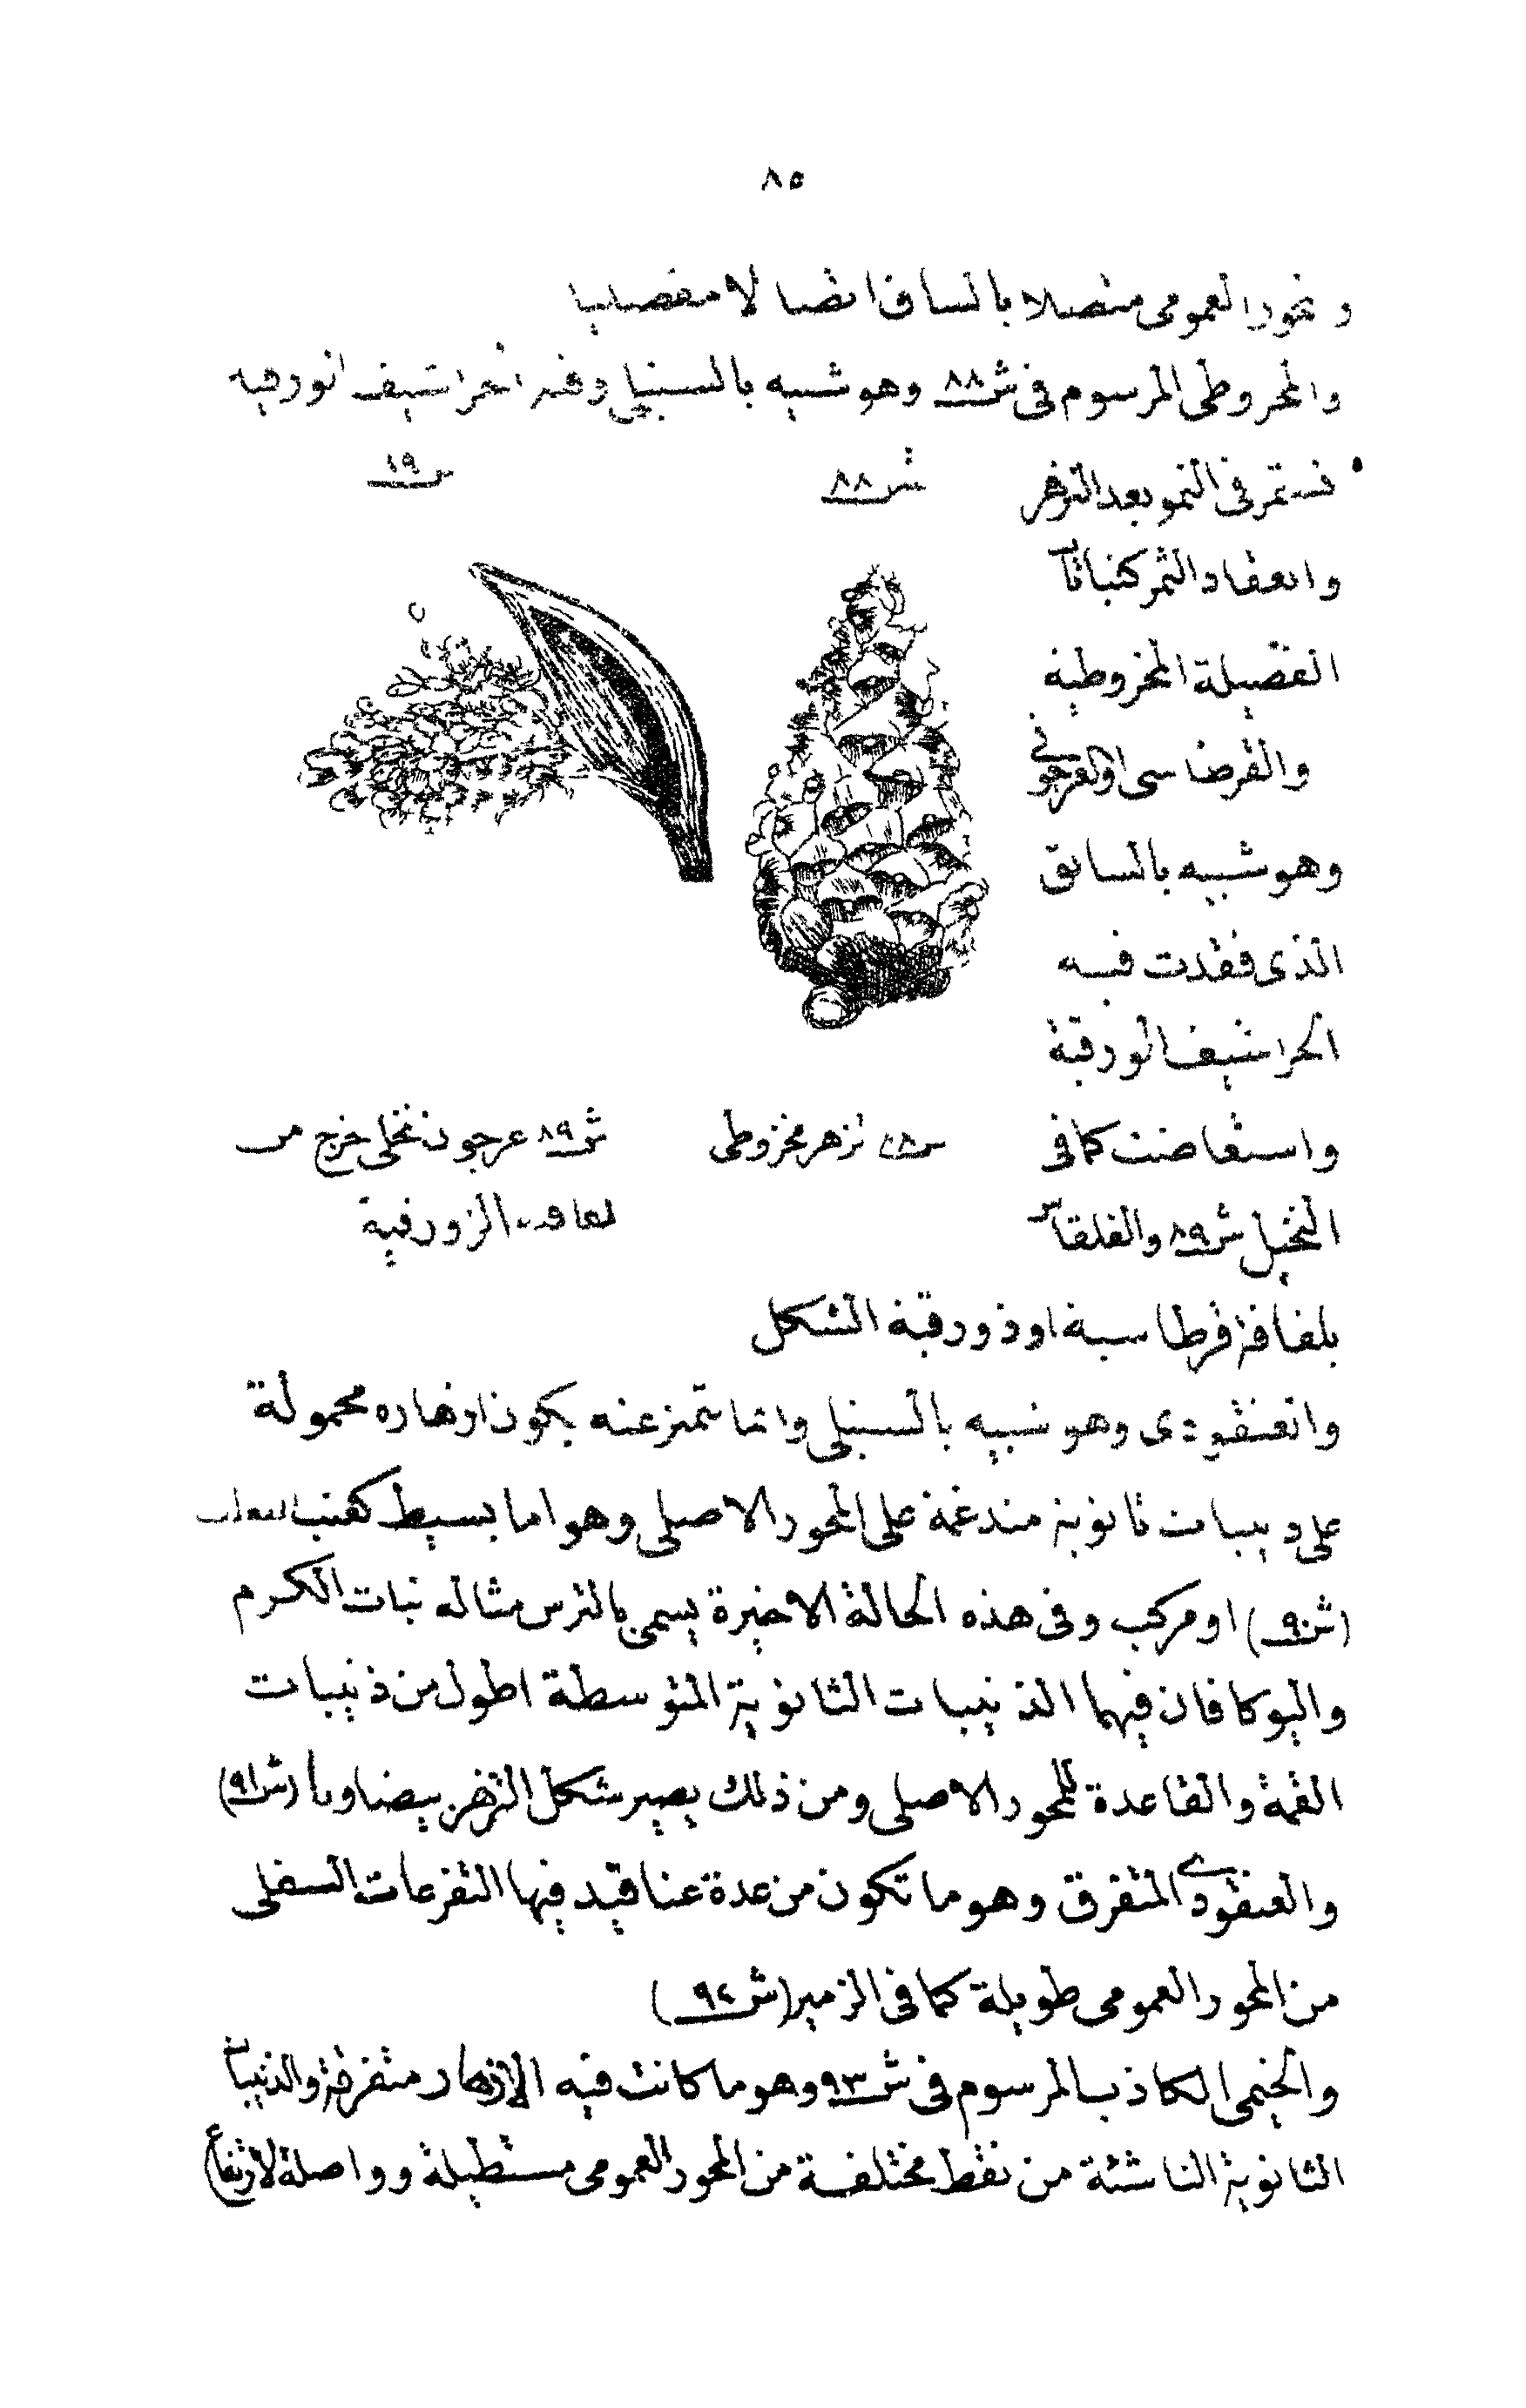 ٨٥
والمحور العمومى متصلا بالساق اتصالا مفصليا
والمخروطى المرسوم فى ش٨٨ وهو شبيه بالسنبلى وفيه الحراشيف الورقيه
ش٨٨
ش٨٩
تستمر فى النمو بعد التزهر
وانعقاد الثمر كنباتات
الفصيلة المخروطية
والقرطاسى او العرجونى
وهو شبيه بالسابق
الذى فقدت فيه
الحراشيف الورقية
واستعاضت كما فى
النخيل ش٨٩ والقلقاس
ش٨٨ تزهر مخروطى
ش٨٩ عرجون نخلى خرج من
لفافته الزورقية
بلفافة قرطاسية او ذورقية الشكل
والعنقودى وهو شبيه بالسنبلى وانما يتميز عنه بكون ازهاره محمولة
على ذنيبات ثانوية مندغمة على المحور الاصلى وهو اما بسيط كعنب الثعلب
(ش٩٠) او مركب وفى هذه الحالة الاخيرة يسمى بالترس مثاله نبات الكرم
واليوكا فان فيهما الذنيبات الثانوية المتوسطة اطول من ذنيبات
القمة والقاعدة للمحور الاصلى ومن ذلك يصير شكل التزهر بيضاويا (ش٩١)
والعنقودى المتفرق وهو ما تكون من عدة عناقيد فيها التفرعات السفلى
من المحور العمومى طويلة كما فى الزمير (ش٩٢)
والخيمى الكاذب المرسوم فى ش٩٣ وهو ما كانت فيه الازهار متفرقة والذنيبات
الثانوية الناشئة من نقط مختلفة من المحور العمومى مستطيلة وواصلة لارتفاع